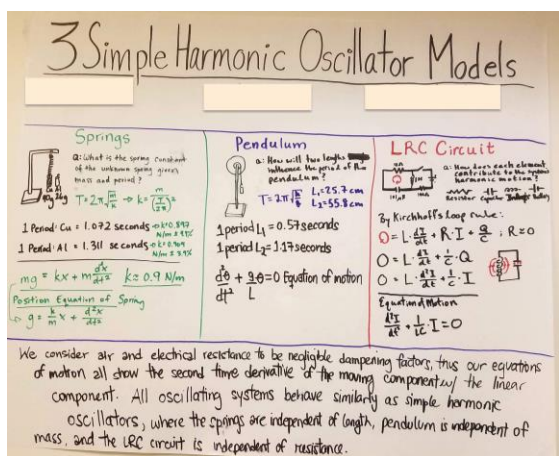 3 Simple Harmonic Oscillator Models
Springs
Q: What is the spring constant
of the unknown spring given
mass and period?
T = 2π√(m/k) → k = m/(T/2π)²
1 Period: Cu = 1.072 seconds
1 Period: Al = 1.311 seconds
mg = kx + m d²x/dt² k ≈ 0.9 N/m
Position Equation of Spring
g = k/m x + d²x/dt²
Pendulum
Q: How will two lengths
influence the period of the
pendulum?
T = 2π√ L₁ = 25.7 cm
L₂ = 55.8 cm
1 period L₁ = 0.57 seconds
1 period L₂ = 1.17 seconds
d²θ/dt² + g·θ/L = 0 Equation of motion
LRC Circuit
Q: How does each element
contribute to the system's
harmonic motion?
Resistor Capacitor Battery
By Kirchhoff's loop rule:
0 = L · dI/dt + R · I + Q/C ; R = 0
0 = L · dI/dt + 1/C · Q
0 = L · d²I/dt² + 1/C · I
Equation of Motion
d²I/dt² + 1/LC · I = 0
We consider air and electrical resistance to be negligible dampening factors, thus our equations
of motion all show the second time derivative of the moving component w/ the linear
component. All oscillating systems behave similarly as simple harmonic
oscillators, where the springs are independent of length, pendulum is independent of
mass, and the LRC circuit is independent of resistance.